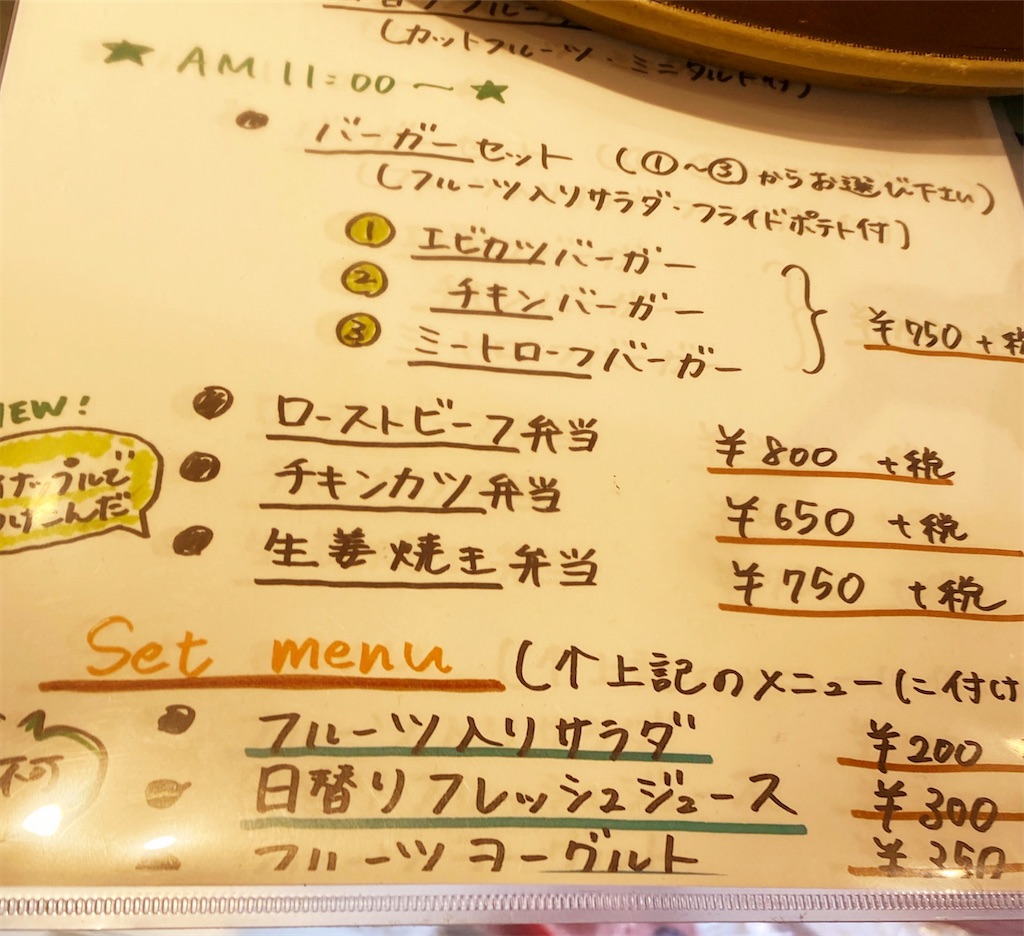 (カットフルーツ・ミニタルト付)
★ AM 11:00 〜 ★
● バーガーセット (①〜③からお選び下さい)
(フルーツ入りサラダ・フライドポテト付)
① エビカツバーガー
② チキンバーガー
③ ミートローフバーガー
¥750 +税
NEW!
● ローストビーフ弁当 ¥800 +税
● チキンカツ弁当 ¥650 +税
● 生姜焼き弁当 ¥750 +税
Set menu (↑上記のメニューに付け
● フルーツ入りサラダ ¥200
● 日替りフレッシュジュース ¥300
● フルーツヨーグルト ¥350